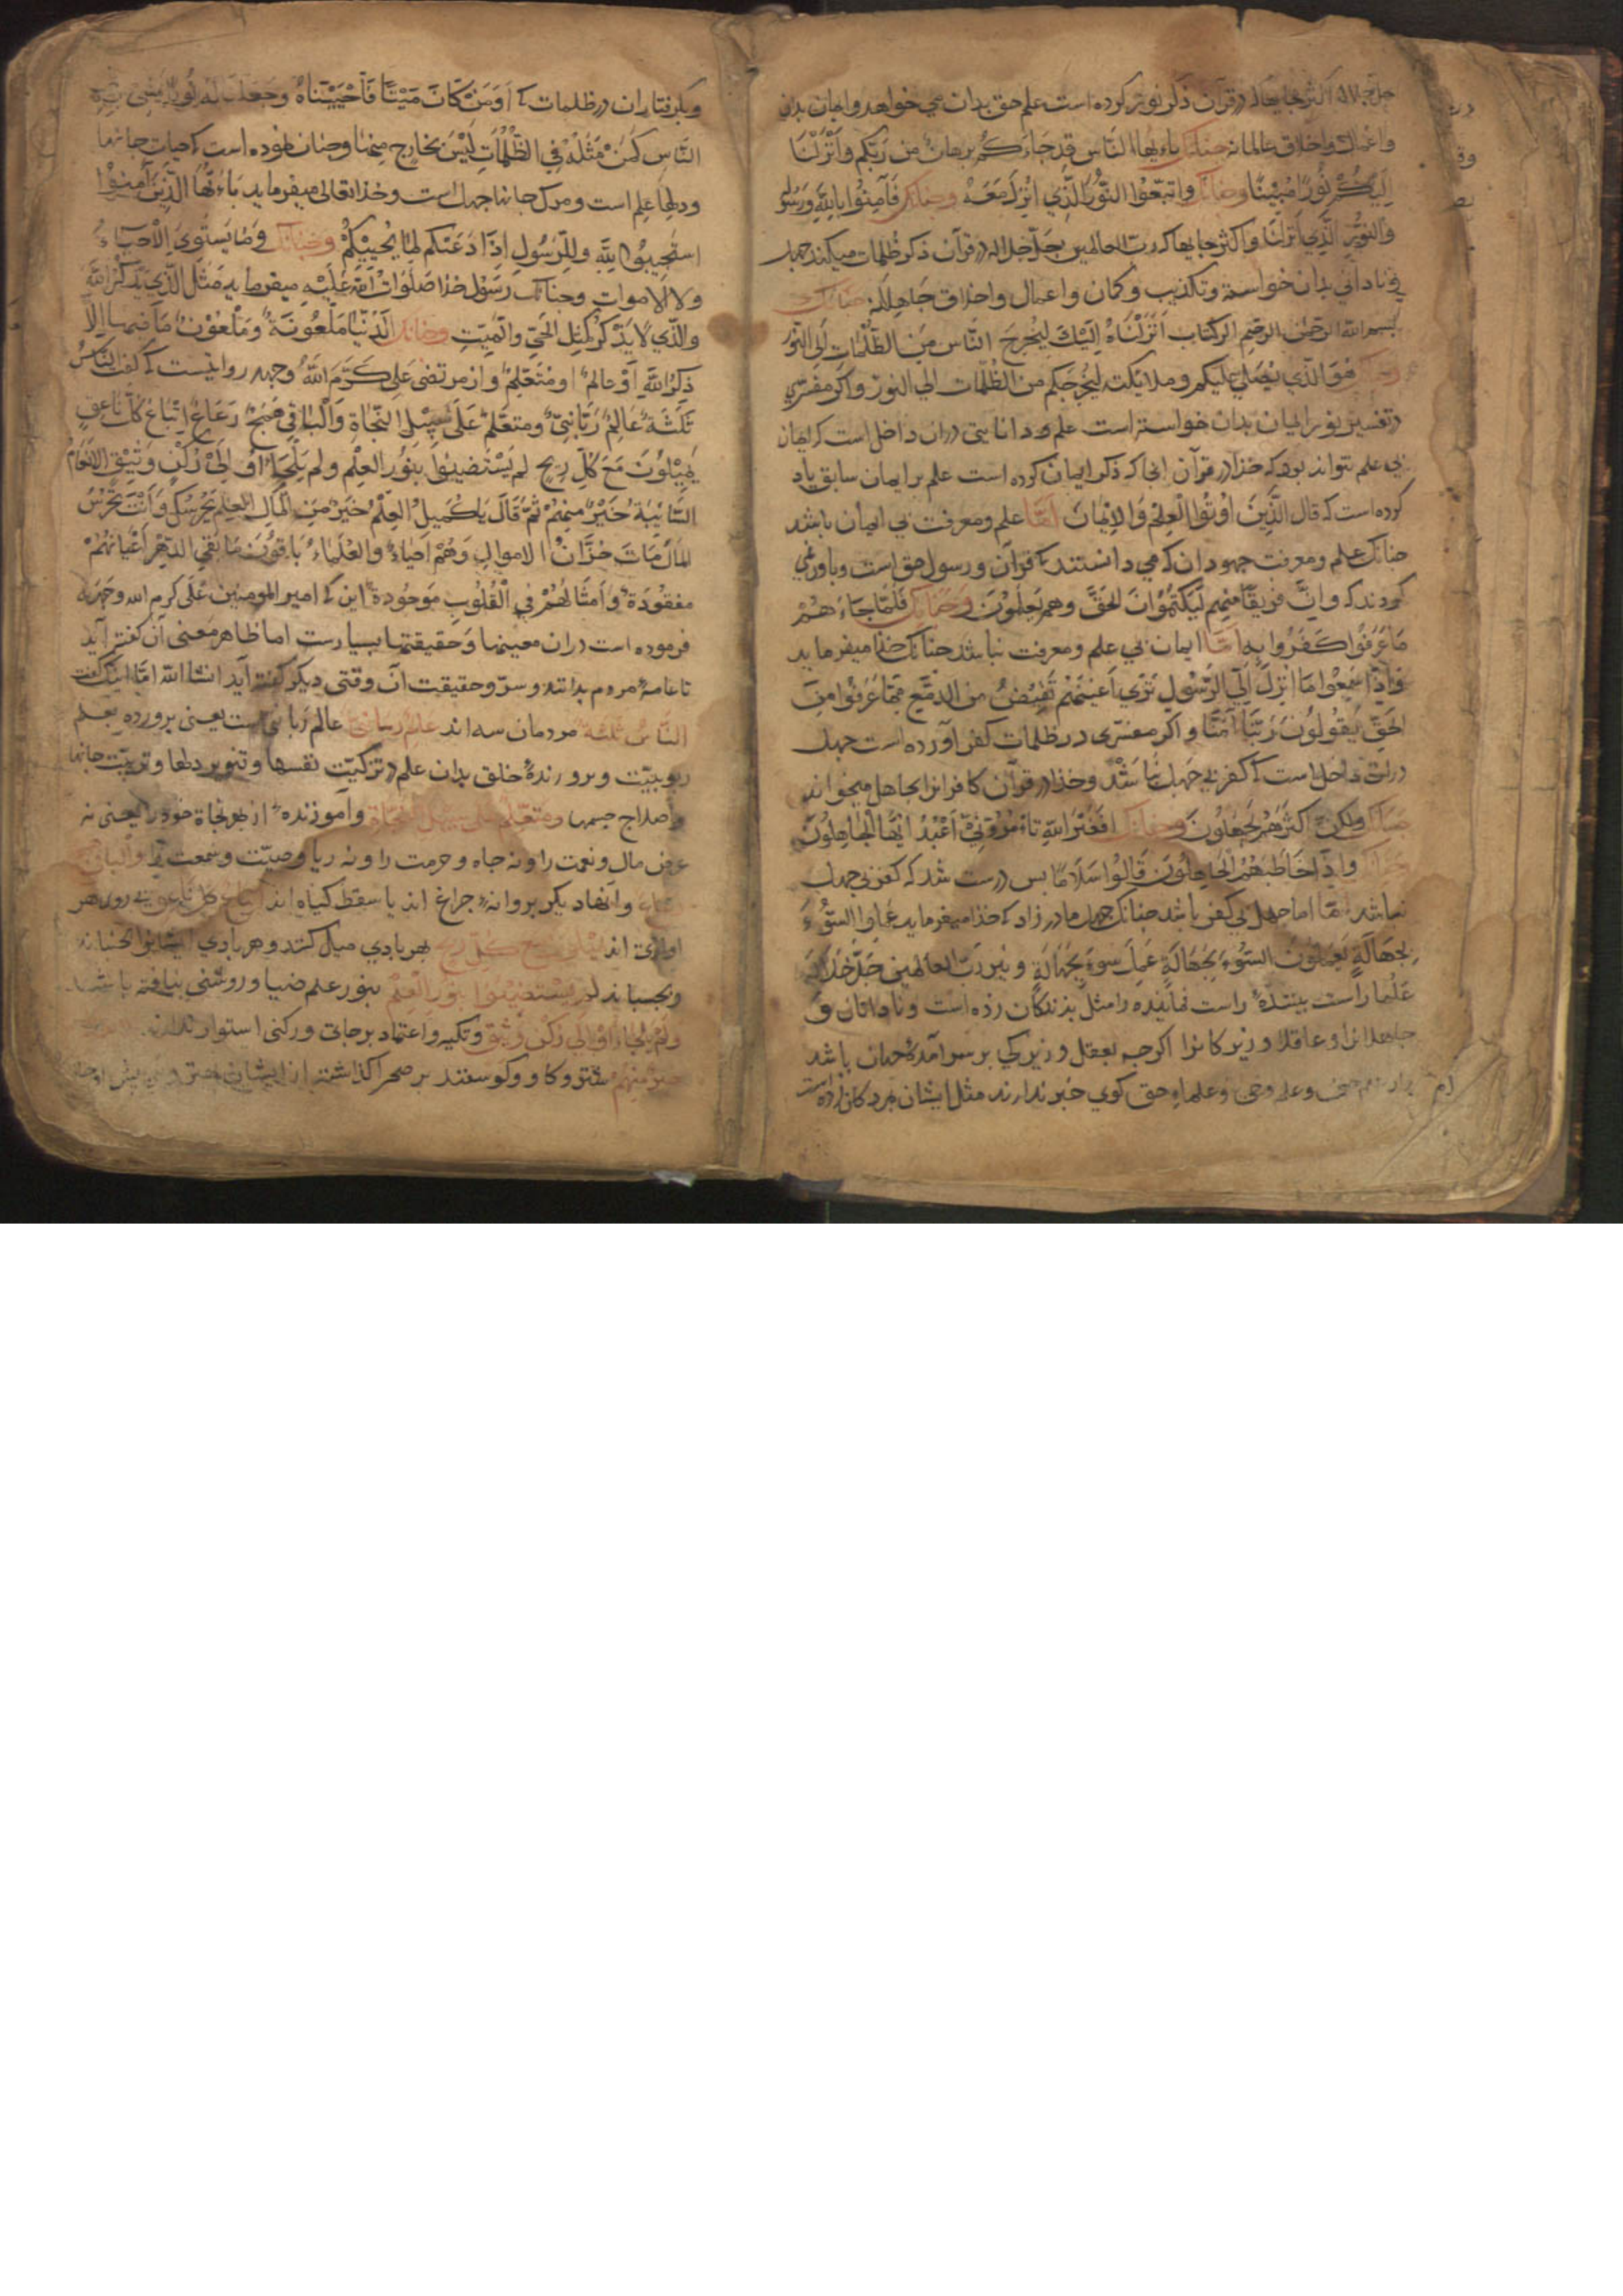 جل جلاله اکثر جایها که در قرآن ذکر نور کرده است علم حق بدان می خواهد و ایمان بدان
و اعمال و اخلاق عالمانه چنانک یاءیها الناس قد جاءکم برهان من ربکم و انزلنا
الیکم نورا مبینا و چنانک و اتبعوا النور الذی انزل معه و چنانک فآمنوا بالله و رسوله
والنور الذی انزلنا و اکثر جایها که رب العالمین جل جلاله در قرآن ذکر ظلمات میکند جهل
و نادانی بدان خواسته و تکذیب و کمان و اعمال و اخلاق جاهلانه چنانک
بسم الله الرحمن الرحیم الر کتاب انزلناه الیک لیخرج الناس من الظلمات الی النور
هو الذی یصلی علیکم و ملائکته لیخرجکم من الظلمات الی النور و اکر مفسری
در تفسیر نور ایمان بدان خواسته است علم و دانایی در ان داخل است که ایمان
بی علم نتواند بود که خدا در قرآن انجا که ذکر ایمان کرده است علم بر ایمان سابق یاد
کرده است که قال الذین اوتوا العلم والایمان امّا علم و معرفت بی ایمان باشد
چنانک علم و معرفت جهودان که می دانستند که قرآن و رسول حق است و باور نمی
کردند که و انّ فریقا منهم لیکتمون الحق و هم یعلمون و چنانک فلما جاءهم
ما عرفوا کفروا به امّا ایمان بی علم و معرفت نباشد چنانک خدا میفرماید
و اذا سمعوا ما انزل الی الرسول تری اعینهم تفیض من الدمع مما عرفوا من
الحق یقولون ربنا آمنا و اکر مفسری در ظلمات کفر آورده است جهل
دران داخل است که کفر بی جهل نباشد و خدا در قرآن کافرانرا جاهل میخواند
چنانک ولکن اکثرهم یجهلون و چنانک افغیر الله تامرونّی اعبد ایها الجاهلون
و اذا خاطبهم الجاهلون قالوا سلاما بس درست شد که کفر بی جهل
نباشد امّا جهل بی کفر باشد چنانک جهل مادر زاد که خدا میفرماید عملوا السوء
بجهالة یعملون السوء بجهالة عمل سوء بجهالة و نیز رب العالمین جل جلاله
علما راست بیننده راست نماینده را مثل بزندکان زده است و نادانان و
جاهلانرا و عاقلان و زیرکانرا اکرچه بعقل و زیرکی بر سر آمده جهان باشد
و علم وحی و علماء حق کوی خبر ندارند مثل ایشان بمردکان زده است
و بکرفتاران در ظلمات که اومن کان میتا فاحییناه و جعلنا له نورا یمشی به فی
الناس کمن مثله فی الظلمات لیس بخارج منها و چنان نموده است که حیات جانها
و دلها علم است و مرک جانها جهل است و خدا تعالی میفرماید یاءیها الذین آمنوا
استجیبوا لله و للرسول اذا دعاکم لما یحییکم و چنانک و ما یستوی الاحیاء
ولا الاموات و چنانک رسول خدا صلوات الله علیه میفرماید مثل الذی یذکر الله
والذی لا یذکر کمثل الحی والمیت و چنانک الدنیا ملعونة و ملعون ما فیها الا
ذکر الله او عالم او متعلم و از مرتضی علی کرم الله وجهه روایتست که کفت الناس
ثلثة عالم ربانی و متعلم علی سبیل النجاة والباقی همج رعاع اتباع کل ناعق
یمیلون مع کل ریح لم یستضیئوا بنور العلم ولم یلجاءوا الی رکن وثیق الانعام
السائبة خیر منهم ثم قال یا کمیل العلم خیر من المال العلم یحرسک و انت تحرس
المال مات خزان الاموال و هم احیاء والعلماء باقون ما بقی الدهر اعیانهم
مفقودة و امثالهم فی القلوب موجودة این که امیر المومنین علی کرم الله وجهه
فرموده است دران معینها و حقیقتها بسیارست اما ظاهر معنی آن کفته آید
تا عامه مردم بدانند و سر و حقیقت آن وقتی دیکر کفته آید انشا الله امّا اینک کفت
الناس ثلثة مردمان سه اند عالم ربانی عالم ربانی است یعنی برورده بعلم
ربوبیت و برورنده خلق بدان علم در تزکیت نفسها و تنویر دلها و تربیت جانها
و اصلاح جسمها و متعلم علی سبیل النجاة و آموزنده از بهر نجاة خود را یعنی نه
عرض مال و نعمت را و نه جاه و حرمت را و نه ریا وصیت و سمعت را والباقی
و آنها دیکر بروانه چراغ اند یا سقط کیاه اند اتباع کل ناعق بی رو هر
اوازی اند یمیلون مع کل ریح بهر بادی میل کنند و هر بادی ایشانرا بجنباند
و بجسباند لم یستضیئوا بنور العلم بنور علم ضیا و روشنی نیافته باشند
ولم یلجاءوا الی رکن وثیق و تکیه و اعتماد بر جایی و رکنی استوار ندارند
خیر منهم شتر و کاو و کوسفند بر صحرا کذاشته از ایشان بهتر